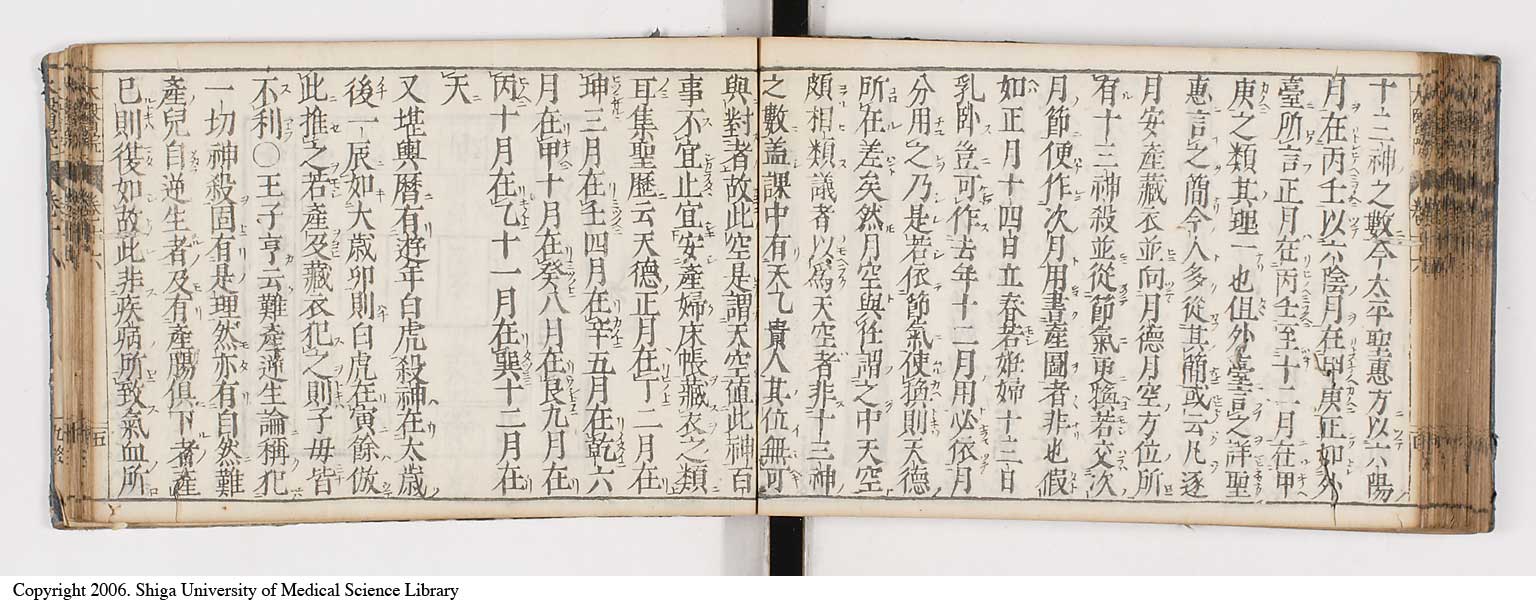 十三神之數今太平聖惠方以六陽
月在丙壬以六陰月在甲庚正如外
臺所言正月在丙壬至十二月在甲
庚之類其理一也但外臺言之詳聖
惠言之簡今人多從其簡或云凡逐
月安產藏衣並向月德月空方位所
有十三神殺並從節氣更換若交次
月節便作次月用書產圖者非也假
如正月十四日立春若姙婦十三日
乳卧豈可作去年十二月用必依月
分用之乃是若依節氣使換則天德
所在差矣然月空與往謂之中天空
頗相類議者以爲天空者非十三神
之數盖課中有天乙貴人其位無可
與對者故此空是謂天空值此神百
事不宜止宜安產婦床帳藏衣之類
耳集聖歷云天德正月在丁二月在
坤三月在壬四月在辛五月在乾六
月在甲十月在癸八月在艮九月在
丙十月在乙十一月在巽十二月在
天
又堪輿曆有遊年白虎殺神在太歲
後一辰如大歳卯則白虎在寅餘倣
此推之若產及藏衣犯之則子母皆
不利○王子亨云難產逆生論稱犯
一切神殺固有是理然亦有自然難
產兒自逆生者及有產腸俱下者產
已則復如故此非疾病所致氣血所
Copyright 2006. Shiga University of Medical Science Library